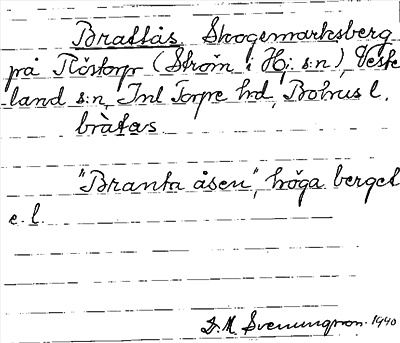 Brattås Skogsmarksberg
på Röstorp (Ström i Hj. s:n), Väste
land s:n, Inl Torpe hd, Bohus l.
bràtas
"Branta åsen", höga berget
e. l.
D. M. Svenungsson 1940